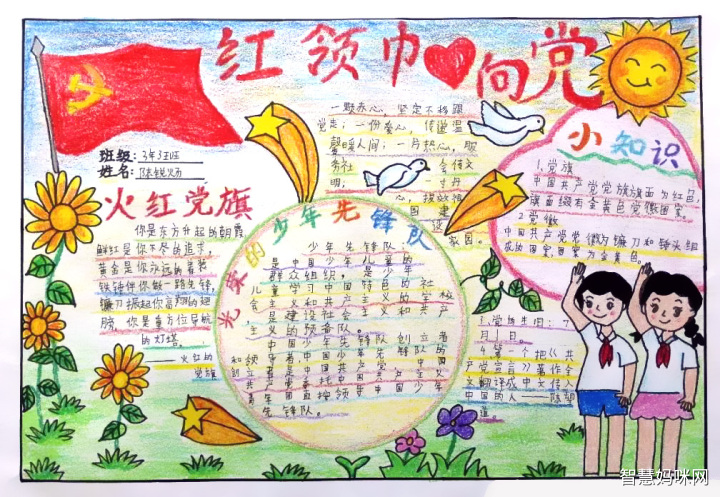 红领巾向党
班级:3年2班
姓名:陈
一颗赤心,坚定不移跟
党走;一份爱心,传递温
暖人间;一片热心,服
务社
明;
心,
家园。
小知识
1.党旗
中国共产党党旗旗面为红色,
旗面缀有金黄色党徽图案。
2.党徽
中国共产党党徽为镰刀和锤头组
成的图案,图案为金黄色。
火红党旗
你是东方升起的朝霞
鲜红是你不尽的追求,
黄金是你永远的着装
铁锤伴你做一路先锋,
镰刀振起你高翔的翅
膀,你是東方位导航
的灯塔。
火红的
党旗
光荣的少年先锋队
少年先锋队:
是中国少年儿童的
群众组织。是少年
儿童学习中国特色的社
会主义和共产主义的学校
是建设社会主义和共产
主义的预备队。
中国少年先锋队创立者
和领导者是中国共产党
先锋队。
3.党的生日:7
月1日。
4.第一个把《共
产党宣言》著作全
文翻译成中文传入
中国的人——陈望
道
智慧妈咪网